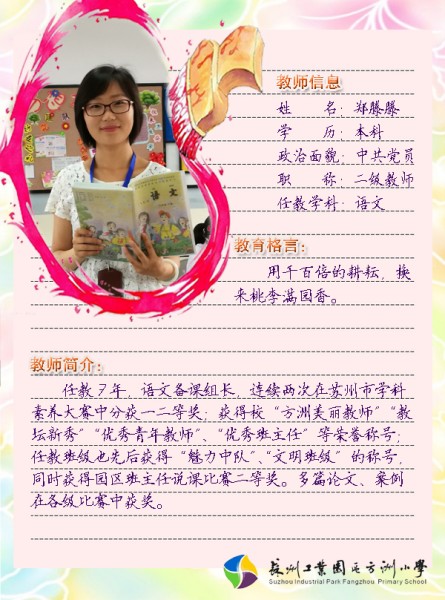 教师信息
姓 名：郑滕滕
学 历：本科
政治面貌：中共党员
职 称：二级教师
任教学科：语文
语文
教育格言：
用千百倍的耕耘，换
来桃李满园香。
教师简介：
任教7年，语文备课组长，连续两次在苏州市学科
素养大赛中分获一二等奖；获得校“方洲美丽教师”“教
坛新秀”“优秀青年教师”、“优秀班主任”等荣誉称号；
任教班级也先后获得“魅力中队”、“文明班级”的称号，
同时获得园区班主任说课比赛二等奖。多篇论文、案例
在各级比赛中获奖。
苏州工业园区方洲小学
Suzhou Industrial Park Fangzhou Primary School